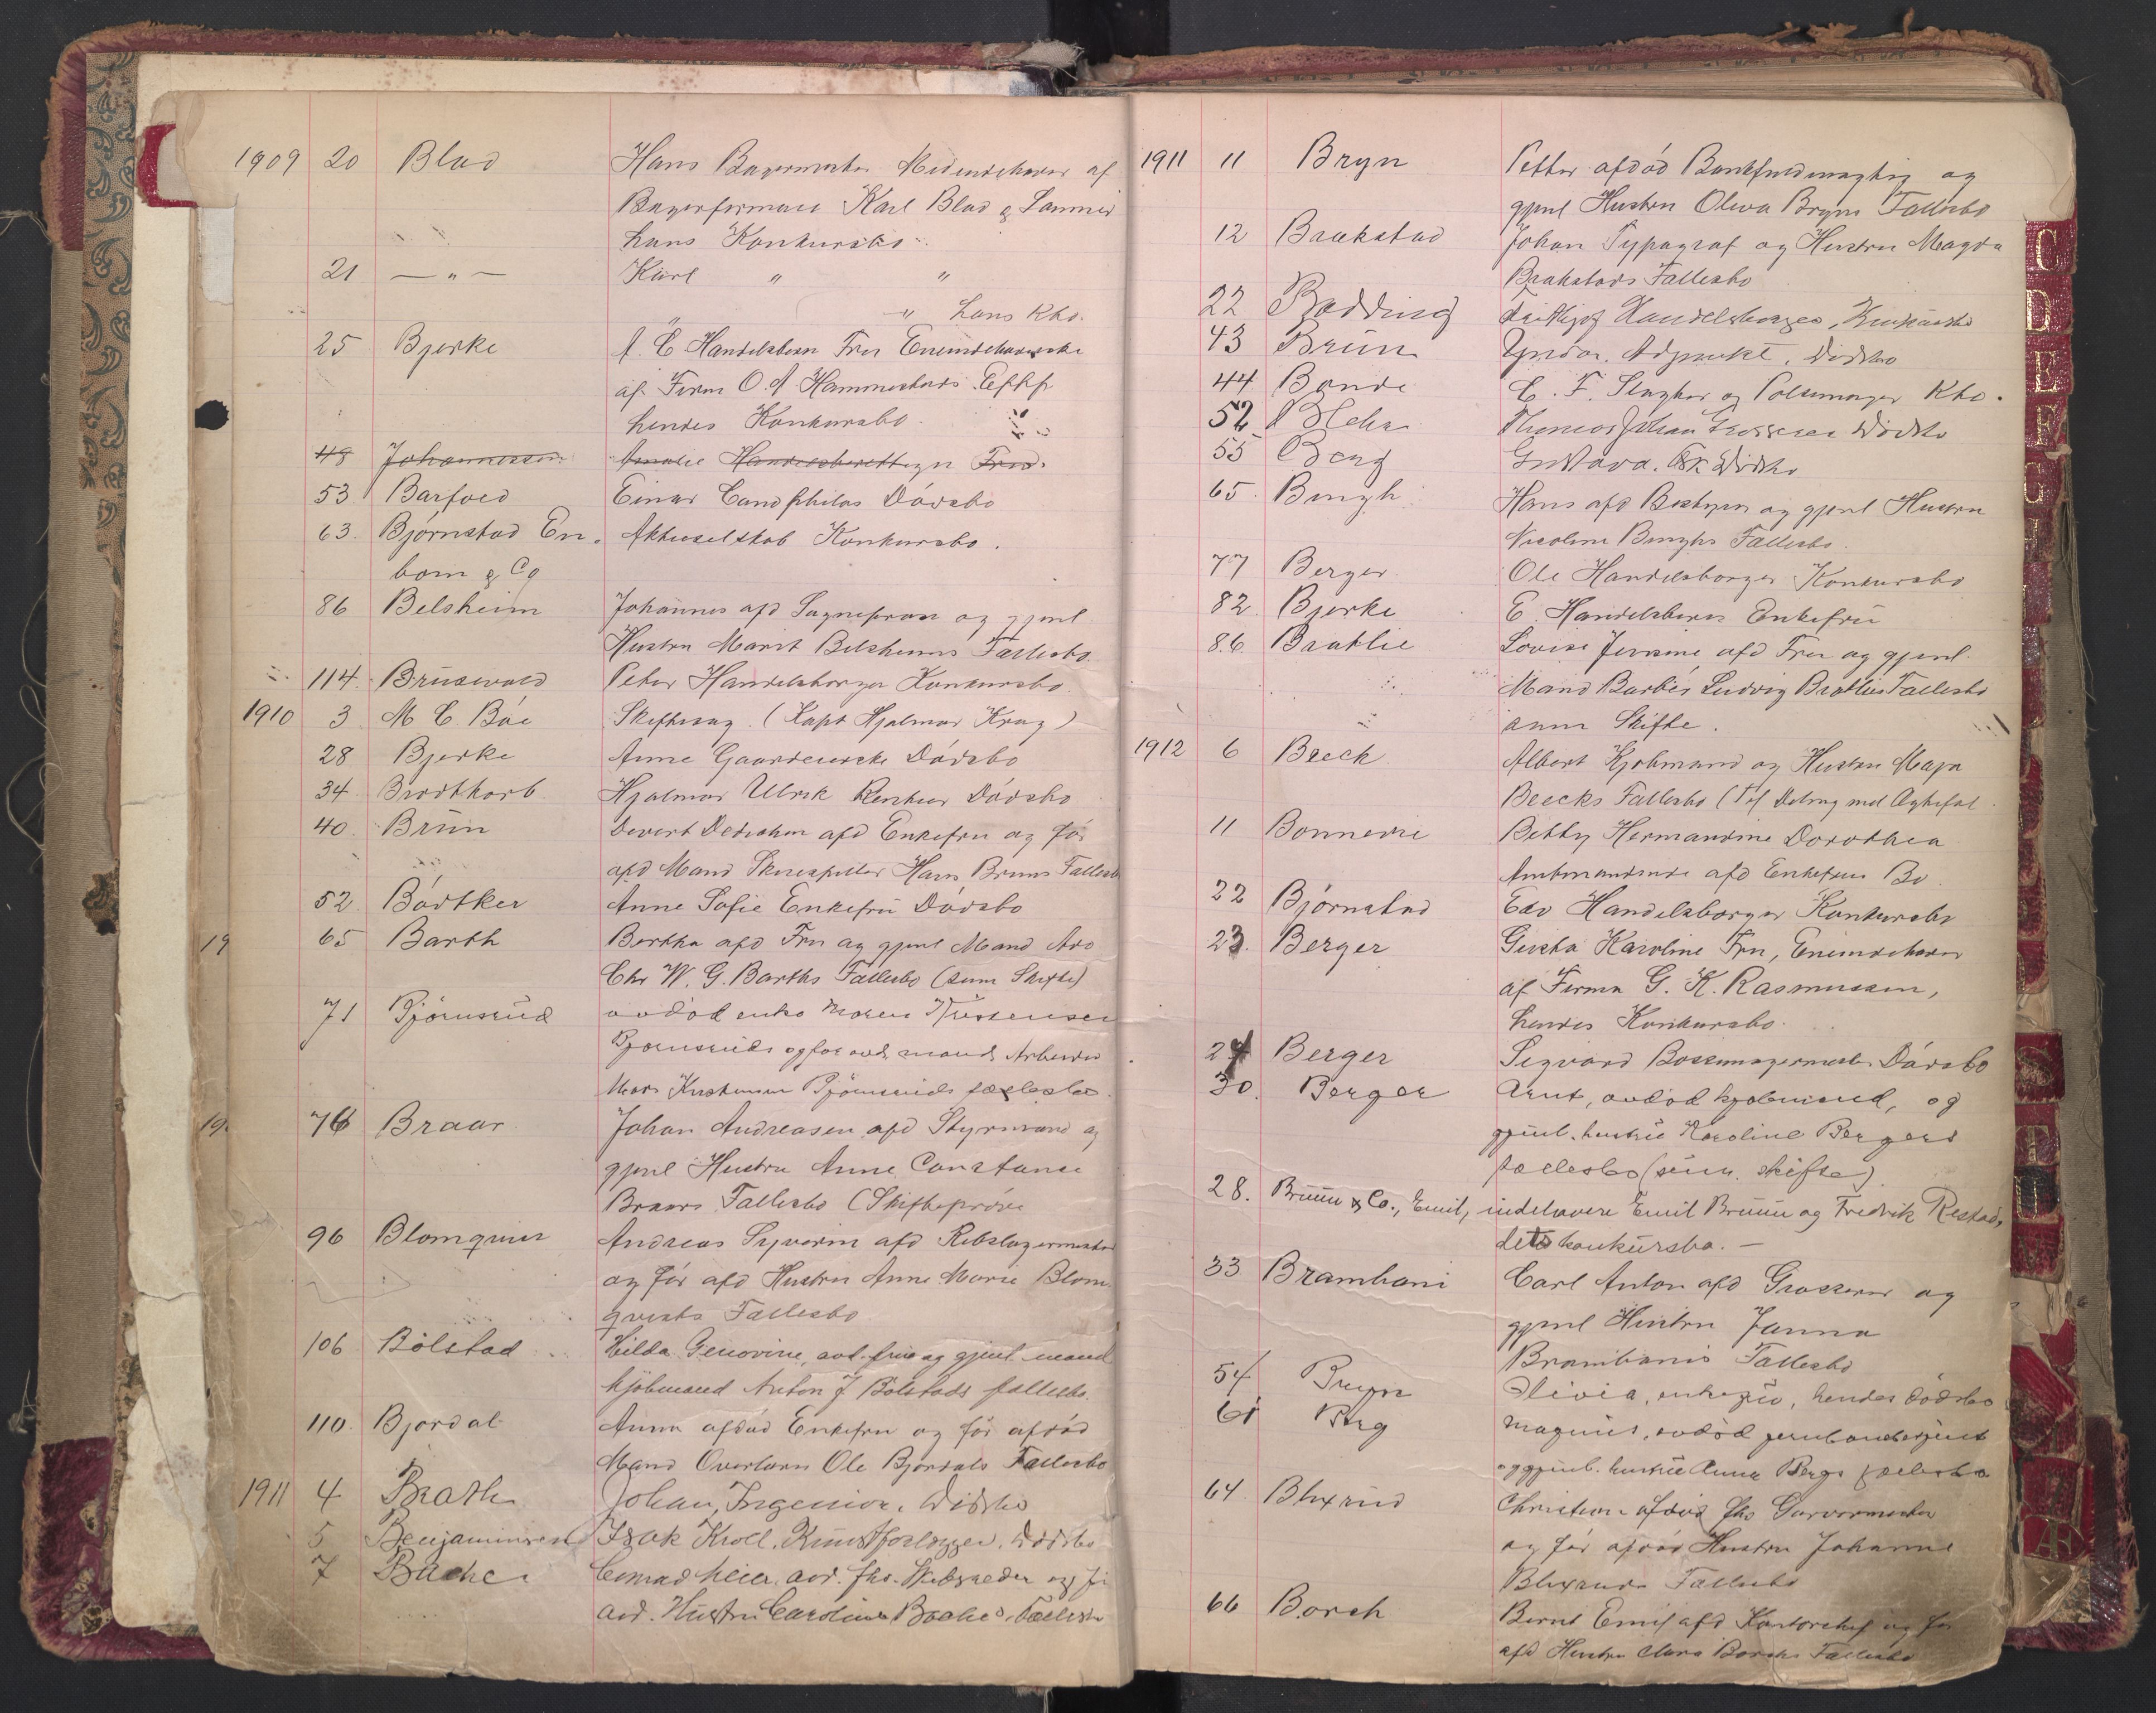 1909 20 Blad Hans Bagermester Medindehaver af
Bagerfirmaet Karl Blad & Sønner
hans Konkursbo
21 — " — Karl " "
" " hans Kbo.
25 Bjerke A. C. Handelsbern Fru Eneindehaverske
af Firm O. A Hammerstads Eftf
hendes Konkursbo.
48 Johannessen Amalie Handelsberettigen Frue.
53 Barfoed Einar Cand philos Dödsbo
63. Björnstad En. Aktieselskab Konkursbo.
bom & Co
86 Belsheim Johannes afd Sogneprest og gjenl
Hustru Marit Belsheims Fællesbo.
114. Brüsevold Peter Handelsborger Konkursbo.
1910 3 M C Böe Skiftesag. (Kapt Hjalmar Krag)
28 Bjerke Anne Gaardeierske Dödsbo
34 Brodtkorb Hjalmar Ulrik Dödsbo
40. Brün afd Enkefru og för
afd Mand Skuespiller Hans Bruns Fællesb
52. Bödtker Anne Sofie Enkefrü Dödsbo
65 Barth Bertha afd Fru og gjenl Mand Adv
Chr W. G. Barths Fællesbo (sum Skifte)
71 Björnsrüd avdöd enke Maren Kristensen
Bjørnsruds og for avd. mand Arbeider
Mads Kristensen Björnsrüds fællesbo.
76 Braar Johan Andreasen afd Styrmand og
gjenl Hustru Anne Constance
Braars Fællesbo (Skifteprøve
96 Blomquist Andreas Syverin afd Rebslagermester
og för afd Hustru Anne Marie Blom
qvists Fællesbo
106 Bölstad Hilda Genovine, avd. frue og gjenl. mand
kjöbmand Anton J Bölstads fællesbo.
110. Bjordal Anna afdöd Enkefru og för afdöd
Mand Overlærer Ole Bjordals Fællesbo
1911 4 Brath Johan, Ingeniör. Dödsbo
5 Benjaminsen Isak Kroll. Kunstforlægger. Dödsbo
7 Bache Conrad Meier. avd. fhv. Skibsreder og för
avd. Hüstru Caroline Baches Fællesbo
1911 11 Bryn Petter afdöd Bankfuldmægtig og
gjenl Hustru Olava Bryns Fællesbo
12 Brækstad Johan Typograf og Hustru Magda
Brækstads Fællesbo
22 Bødding Handelsborger, Konkursbo
43 Brün Yngvar. Adjunkt. Dödsbo
44 Bonde C. F. Slagter og Pølsemager Kbo.
52 Blehr Thomas Johan Grosserer Dödsbo
55 Berg Gustava. Dödsbo
65. Bingh Hans afd Bestyrer og gjenl Hustru
Nicoline Binghs Fællesbo.
77 Berger Ole Handelsborger Konkursbo
82. Bjerke E. Handelsberet Enkefrü
86. Bratlie Lovise Jensine afd Fru og gjenl.
Mand Barber Ludvig Bratlies Fællesbo
sum Skifte.
1912 6 Beeck. Albert Kjøbmand og Hustru Maja
Beecks Fællesbo
11 Bonnevie Betty Hermandine Dorothea
Amtmandinde afd Enkefrus Bo.
22 Björnstad Edv Handelsborger Konkursbo
23. Berger Giska Karoline Fru, Eneindehaver
af Firma G. K. Rasmussen,
hendes Konkursbo.
24 Berger Sigvard Bøssemagermester Dödsbo
30. Berger Arnt, avdöd kjøbmand, og
gjenl. hustrü Karoline Bergers
fællesbo (süm. skifte)
28. Brüün & Co., Emil, indehavere Emil Brüün og Fredrik Restad,
dets konkürsbo. —
33 Brambani Carl Anton afd Grosserer og
gjenl Hustru Janna
Brambanis Fællesbo
54 Bryn Olivia, enkefrü, hendes dödsbo
61 Berg Magnüs, avdöd jernbanebetjent
og gjenl. hustrü Anna Bergs fællesbo
64. Blixrud Christian afdöd fhv Garvermester
og för afdöd Hustru Johanne
Blixruds Fællesbo
66 Borch Bernt Emil afd Kontorchef og för
afd Hustru Clara Borchs Fællesbo
C
D
E
F
G